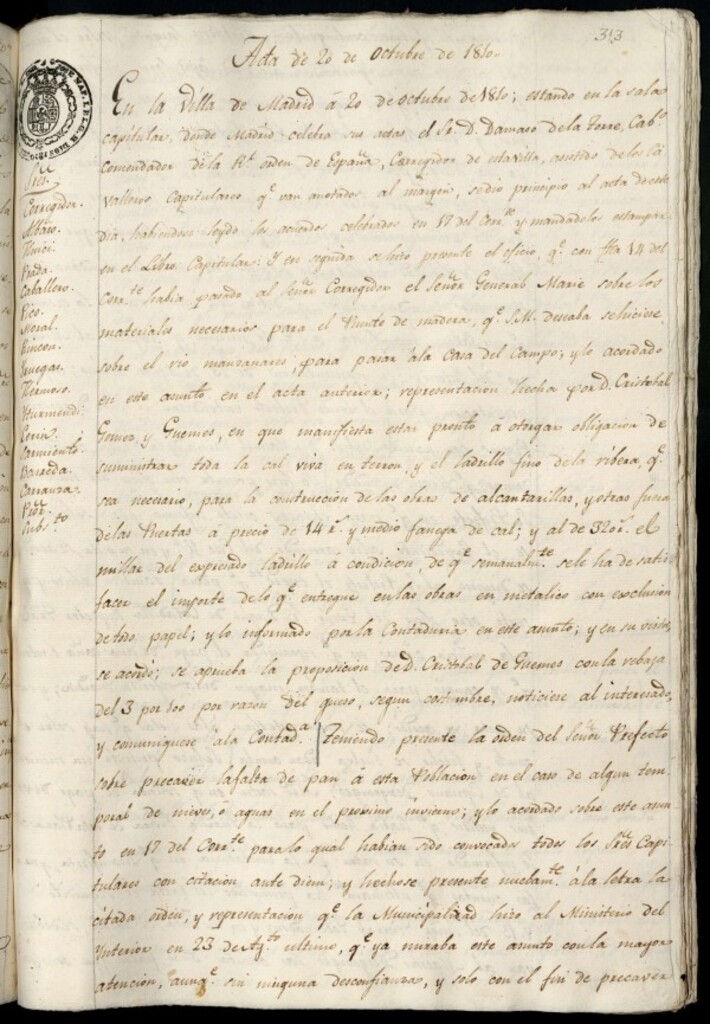 313
Acta de 20 de Octubre de 1810.
En la Villa de Madrid á 20 de octubre de 1810; estando en la sala
capitular, donde Madrid celebra sus actas el Sr. D. Damaso de la Torre, Cab.o
Comendador de la Rl. orden de España, Corregidor de esta villa, asistido de los Ca-
valleros Capitulares q.e van anotados al margen, se dio principio al acta de este
dia, habiendose leydo los acuerdos celebrados en 17 del Corr.te y mandadolos estampar
en el Libro Capitular: Y en seguida se hizo presente el oficio, q.e con fha 14 del
Corr.te habia pasado al Señor Corregidor el Señor General Marie sobre los
materiales necesarios para el Puente de madera, q.e S.M. deseaba se hiciese
sobre el rio manzanares, para pasar à la Casa del Campo; y lo acordado
en este asunto en el acta anterior; representacion hecha por D. Cristobal
Gomez y Guemes, en que manifiesta estar pronto á otorgar obligacion de
suministrar toda la cal viva en terron, y el ladrillo fino de la ribera, q.e
sea necesario, para la construccion de las obras de alcantarillas, y otras fuera
de las Puertas á precio de 14 r.s y medio fanega de cal; y al de 320 r.s el
millar del expresado ladrillo á condicion, de q.e semanalm.te se le ha de satis-
facer el importe de lo q.e entregue en las obras en metalico con exclusion
de todo papel; y lo informado por la Contaduria en este asunto; y en su vista,
se acordó; se aprueba la proposicion de D. Cristobal de Guemes con la rebaja
del 3 por 100 por razon del queso, segun costumbre, noticiese al interesado,
y comuniquese à la Contad.a Teniendo presente la orden del Señor Prefecto
sobre precaver la falta de pan á esta Poblacion en el caso de algun tem-
poral de nieves, ó aguas en el proximo invierno; y lo acordado sobre este asun-
to en 17 del Corr.te para lo qual habian sido convocados todos los Sres Capi-
tulares con citacion ante diem; y hechose presente nuebam.te à la letra la
citada orden, y representacion q.e la Municipalidad hizo al Ministerio del
Interior en 23 de Ag.to ultimo, q.e ya miraba este asunto con la mayor
atencion, aunq.e sin ninguna desconfianza, y solo con el fin de precaver
Sres.
Corregidor.
Albaro.
Prada.
Caballero.
Pico.
Moral.
Rincon.
Benegas.
Hermoso.
Yturmendi.
Sarmiento.
Barreda.
Carranza.